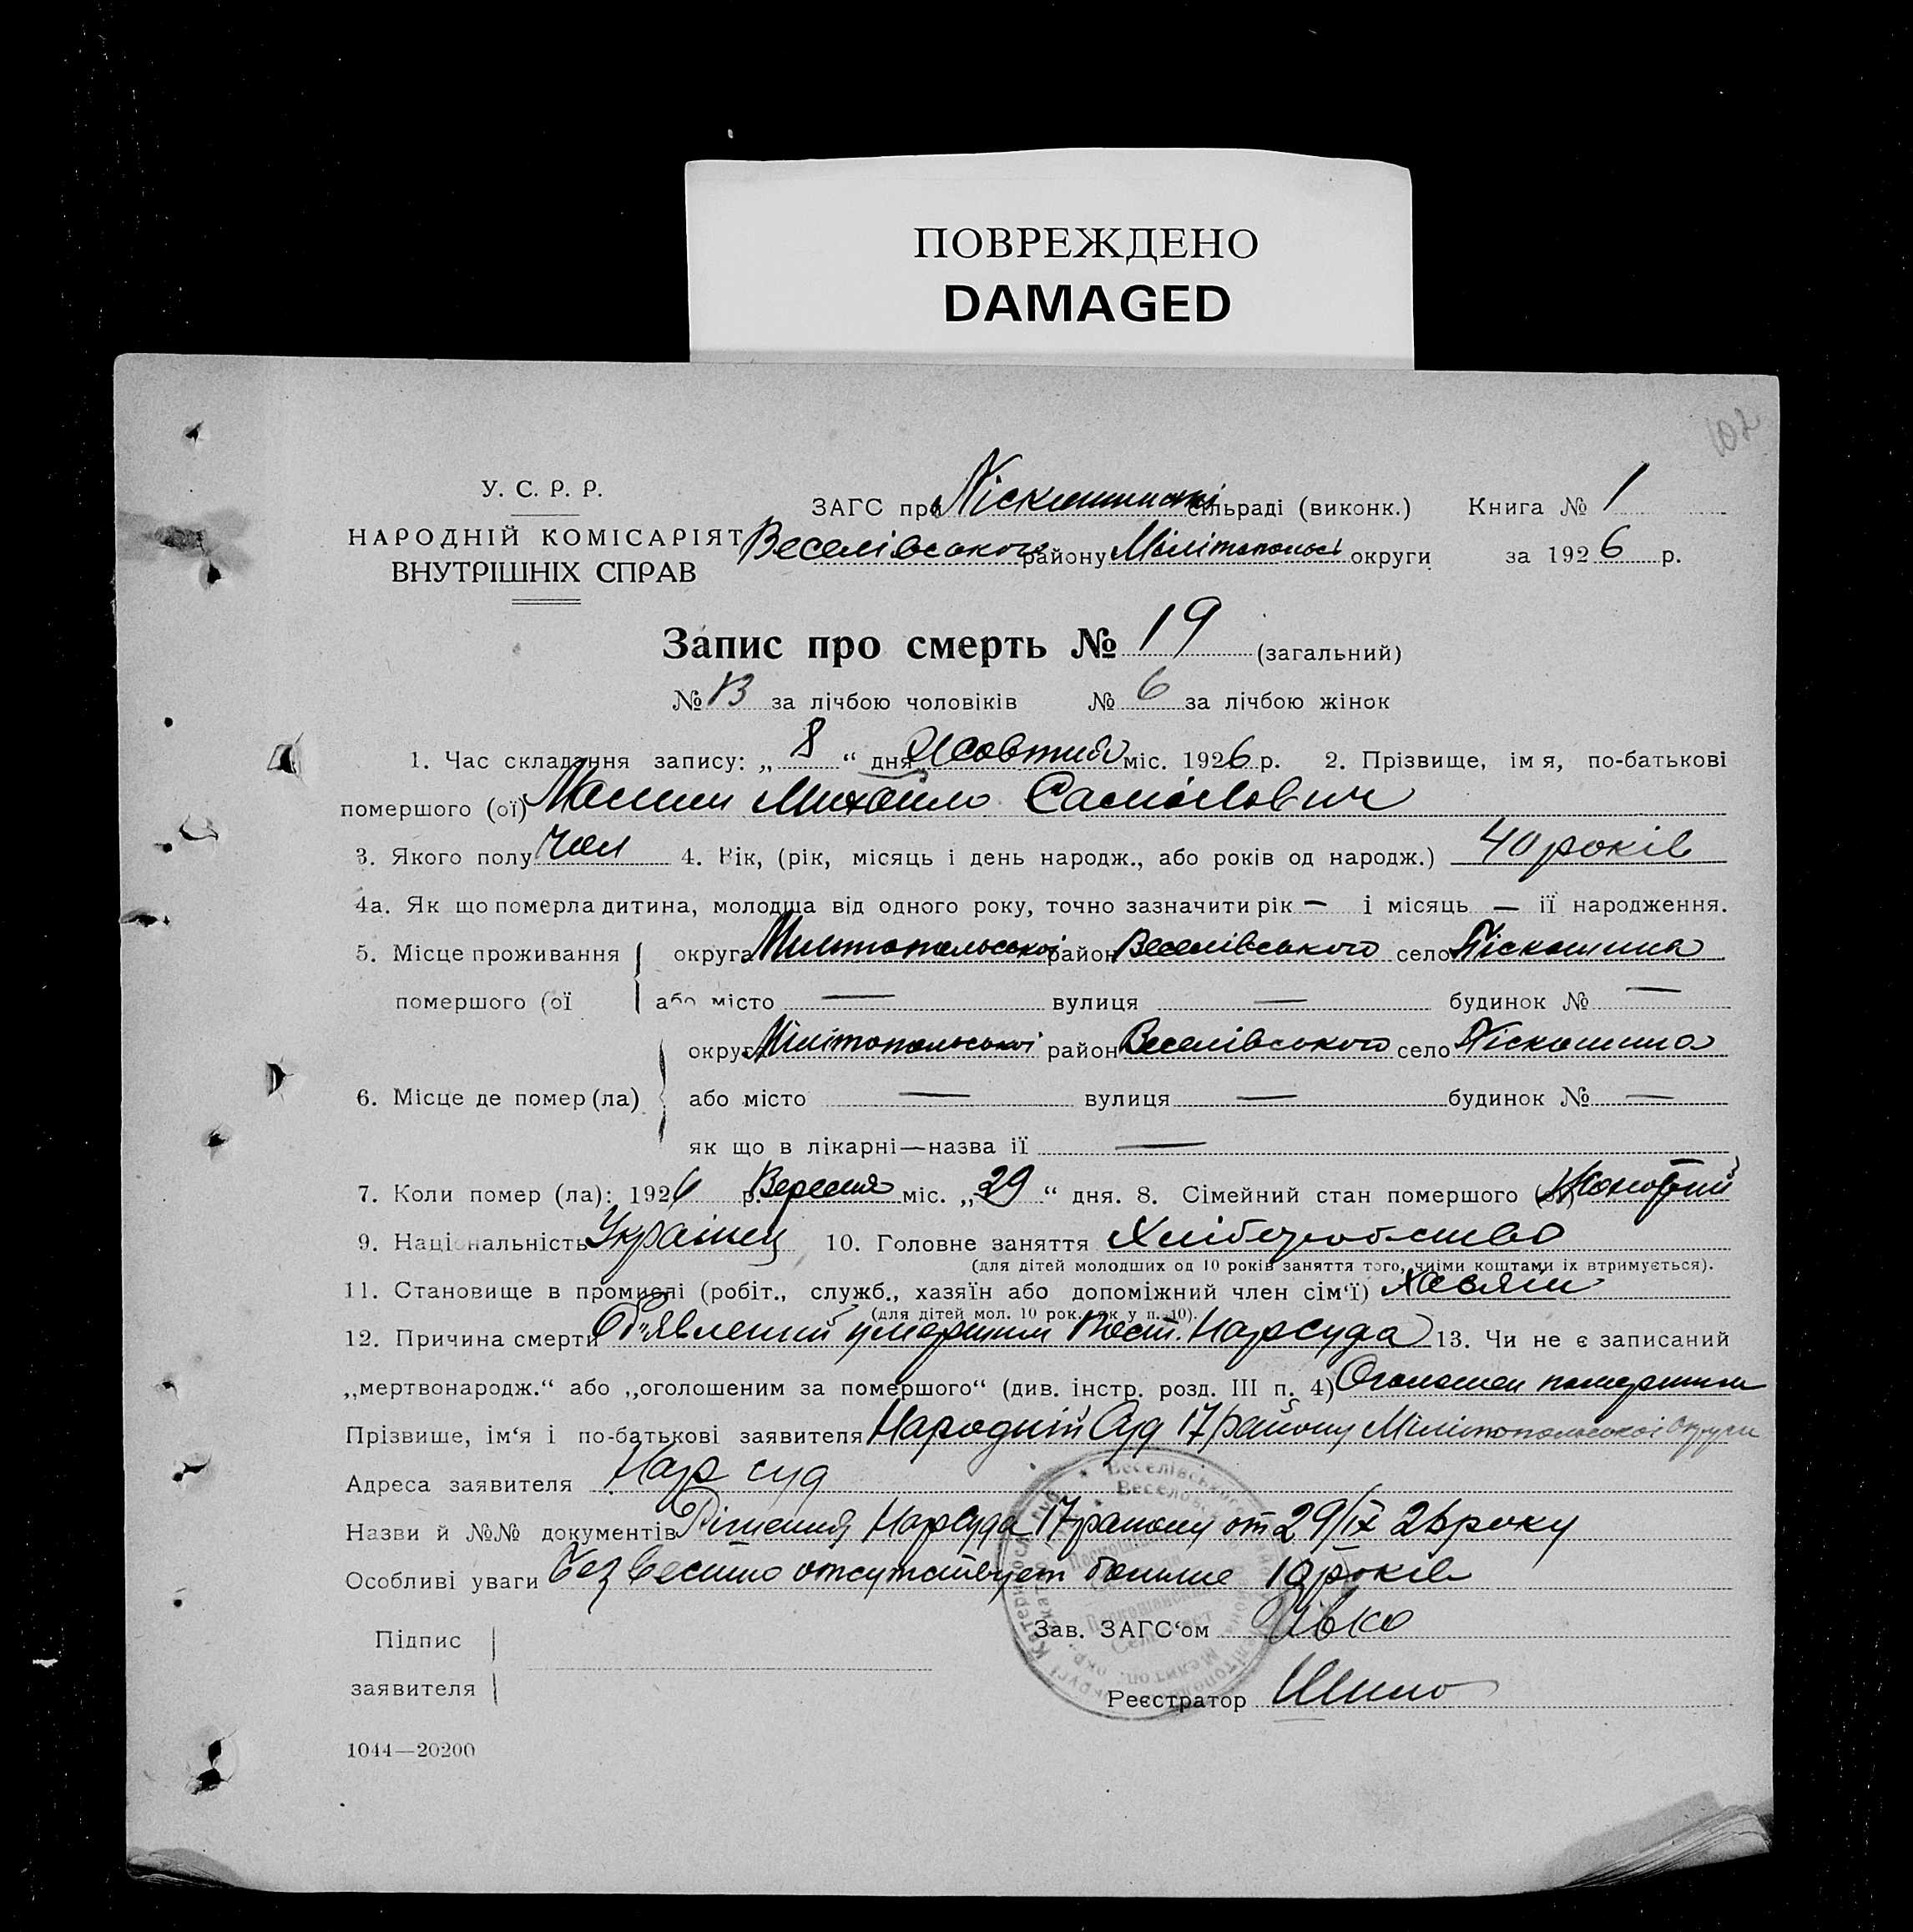 ПОВРЕЖДЕНО
DAMAGED
102
У. С. Р. Р.
НАРОДНІЙ КОМІСАРІЯТ
ВНУТРІШНІХ СПРАВ
ЗАГС при сільраді (виконк.) Книга № 1
Веселівського району Мелітопольс округи за 1926 р.
Запис про смерть № 19 (загальний)
№ 13 за лічбою чоловіків № 6 за лічбою жінок
1. Час складання запису: „ 8 “ дня Жовтня міс. 1926 р. 2. Прізвище, ім я, по-батькові
помершого (ої) Михайло
3. Якого полу Чол 4. Вік, (рік, місяць і день народж., або років од народж.) 40 років
4а. Як що померла дитина, молодща від одного року, точно зазначити рік — і місяць — ії народження.
5. Місце проживання округа Милітопольської район Веселівського село Піскошина
помершого (ої або місто — вулиця — будинок № —
округа Мілітопольської район Веселівського село Піскошина
6. Місце де помер (ла) або місто — вулиця — будинок № —
як що в лікарні—назва ії —
7. Коли помер (ла): 1926 р. Вересня міс. „ 29 “ дня. 8. Сімейний стан помершого (ої) Жонотий
9. Національність Українец 10. Головне заняття Хліборобство
(для дітей молодших од 10 років заняття того, чиїми коштами їх втримується).
11. Становище в промислі (робіт., служб., хазяїн або допоміжний член сім‘ї) Хазяїн
(для дітей мол. 10 рок. як у п. 10).
12. Причина смерти Об"явлений умершим Пост. Нарсуда 13. Чи не є записаний
„мертвонародж.“ або „оголошеним за помершого“ (див. інстр. розд. III п. 4) Оголошен помершим
Прізвише, ім‘я і по-батькові заявителя Народній Суд 17 району Мілітопольської Округи
Адреса заявителя Нар суд
Назви й №№ документів Рішения Нарсуда 17 району от 29/IX 26 року
Особливі уваги безвестно отсутствует больше 10 років
Підпис
заявителя
Зав. ЗАГС‘ом
Реєстратор Шило
1044—20200